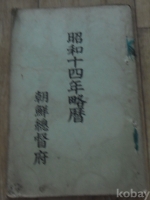 昭和十四年略曆
朝鮮總督府
kobay